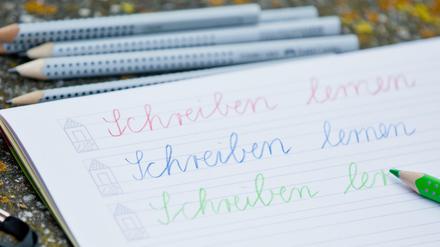 Schreiben lernen
Schreiben lernen
Schreiben ler